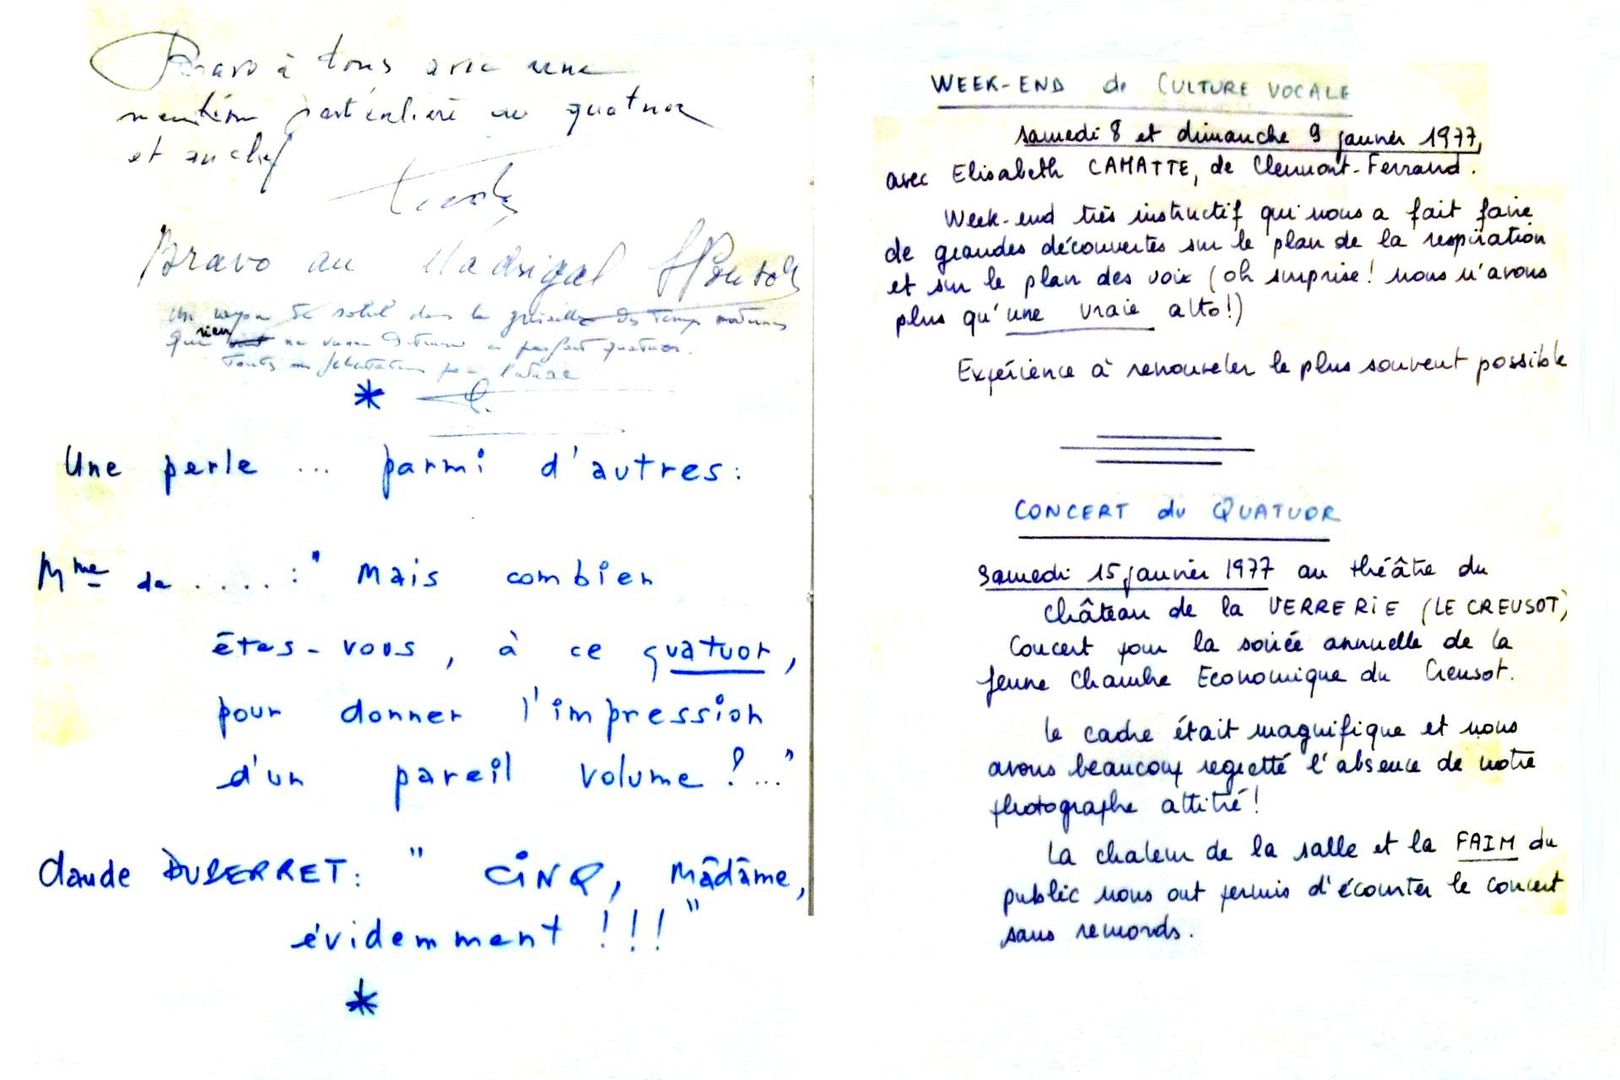 Bravo à tous avec une
mention particulière au quatuor
et au chef
Bravo au Madrigal
un rayon de soleil dans la grisaille des temps modernes
qui rien ne vaux un parfait quatuor.
Toutes mes félicitations pour
*
Une perle ... parmi d'autres :
Mme de ..... : " Mais combien
êtes-vous, à ce quatuor,
pour donner l'impression
d'un pareil volume ?..."
Claude DUBERRET : " CINQ, Mâdâme,
évidemment !!! "
*
WEEK-END de CULTURE VOCALE
samedi 8 et dimanche 9 janvier 1977,
avec Elisabeth CAMATTE, de Clermont-Ferrand.
Week-end très instructif qui nous a fait faire
de grandes découvertes sur le plan de la respiration
et sur le plan des voix (oh surprise ! nous n'avons
plus qu'une vraie alto !)
Expérience à renouveler le plus souvent possible
CONCERT du QUATUOR
Samedi 15 janvier 1977 au théâtre du
Château de la VERRERIE (LE CREUSOT)
Concert pour la soirée annuelle de la
Jeune Chambre Economique du Creusot.
Le cadre était magnifique et nous
avons beaucoup regretté l'absence de notre
photographe attitré !
La chaleur de la salle et la FAIM du
public nous ont permis d'écourter le concert
sans remords.